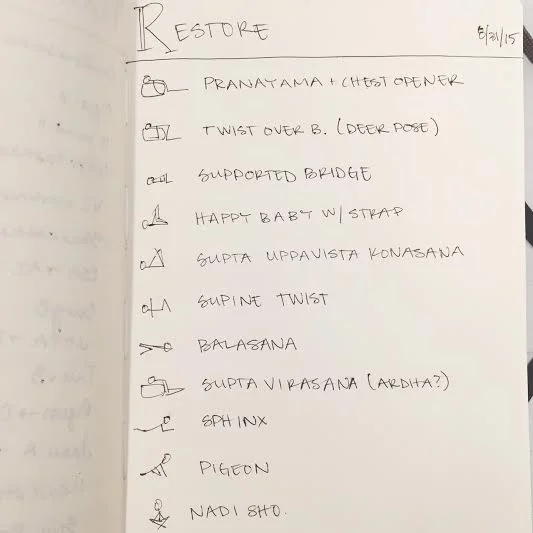 RESTORE
8/31/15
PRANAYAMA + CHEST OPENER
TWIST OVER B. (DEER POSE)
SUPPORTED BRIDGE
HAPPY BABY W/ STRAP
SUPTA UPPAVISTA KONASANA
SUPINE TWIST
BALASANA
SUPTA VIRASANA (ARDHA?)
SPHINX
PIGEON
NADI SHO.